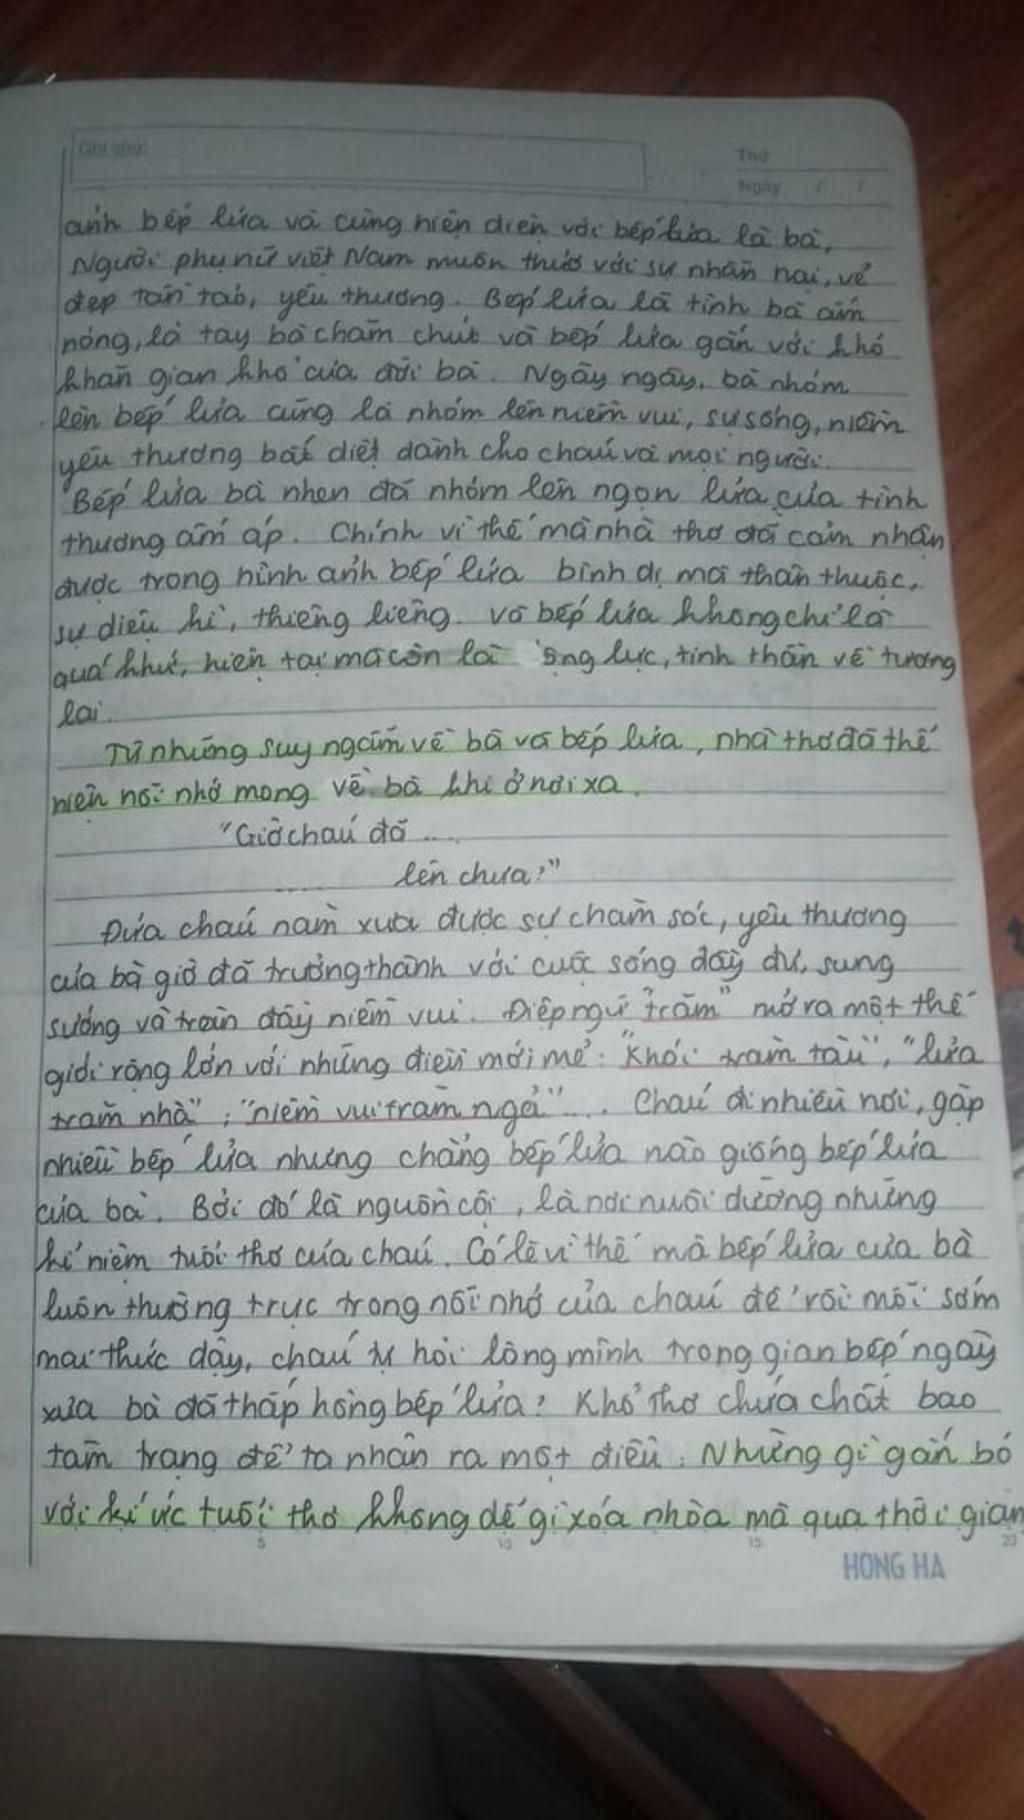 Ghi chú:
Thứ
Ngày / /
ảnh bếp lửa và cũng hiện diện với bếp lửa là bà,
Người phụ nữ việt Nam muôn thuở với sự nhẫn nại, vẻ
đẹp tần tảo, yêu thương. Bếp lửa là tình bà ấm
nóng, là tay bà chăm chút và bếp lửa gắn với khó
khăn gian khổ của đời bà. Ngày ngày, bà nhóm
lên bếp lửa cũng là nhóm lên niềm vui, sự sống, niềm
yêu thương bất diệt dành cho cháu và mọi người.
Bếp lửa bà nhen đã nhóm lên ngọn lửa của tình
thương ấm áp. Chính vì thế mà nhà thơ đã cảm nhận
được trong hình ảnh bếp lửa bình dị mà thân thuộc,
sự diệu kì, thiêng liêng. và bếp lửa không chỉ là
quá khứ, hiện tại mà còn là lực, tinh thần về tương
lai.
Từ những suy ngẫm về bà và bếp lửa, nhà thơ đã thể
hiện nỗi nhớ mong về bà khi ở nơi xa.
"Giờ cháu đã ....
..... lên chưa?"
Đứa cháu năm xưa được sự chăm sóc, yêu thương
của bà giờ đã trưởng thành với cuộc sống đầy đủ, sung
sướng và tràn đầy niềm vui. Điệp ngữ "trăm" mở ra một thế
giới rộng lớn với những điều mới mẻ: "Khói trăm tàu", "lửa
trăm nhà"; "niềm vui trăm ngả".... Cháu đi nhiều nơi, gặp
nhiều bếp lửa nhưng chẳng bếp lửa nào giống bếp lửa
của bà. Bởi đó là nguồn cội, là nơi nuôi dưỡng những
kỉ niệm tuổi thơ của cháu. Có lẽ vì thế mà bếp lửa của bà
luôn thường trực trong nỗi nhớ của cháu để rồi mỗi sớm
mai thức dậy, cháu tự hỏi lòng mình trong gian bếp ngày
xưa bà đã thắp hồng bếp lửa? Khổ thơ chứa chất bao
tâm trạng để ta nhận ra một điều: Những gì gắn bó
với kí ức tuổi thơ không dễ gì xóa nhòa mà qua thời gian
5 10 15 20
HONG HA